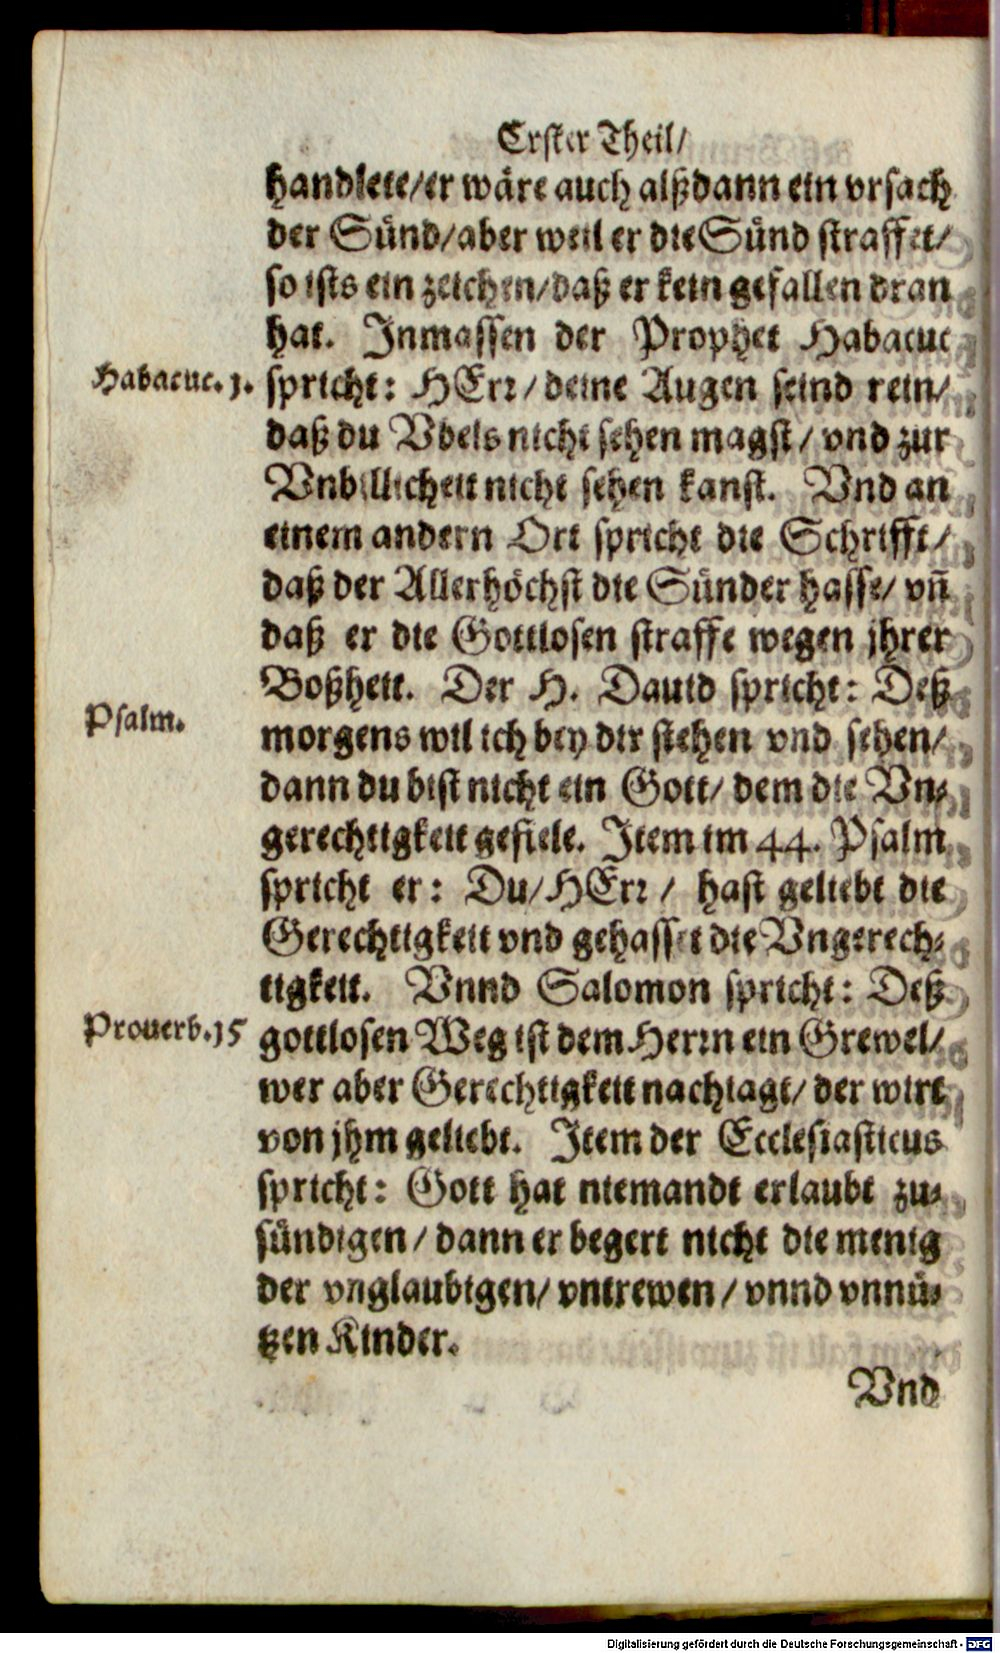 Erster Theil/
handlete/er wäre auch alßdann ein vrsach
der Sünd/aber weil er die Sünd straffet/
so ists ein zeichen/daß er kein gefallen dran
hat. Inmassen der Prophet Habacuc
Habacuc. 1. spricht: HErr/deine Augen seind rein/
daß du Vbels nicht sehen magst/vnd zur
Vnbillicheit nicht sehen kanst. Vnd an
einem andern Ort spricht die Schrifft/
daß der Allerhöchst die Sünder hasse/vñ
daß er die Gottlosen straffe wegen jhrer
Boßheit. Der H. Dauid spricht: Deß
Psalm. morgens wil ich bey dir stehen vnd sehen/
dann du bist nicht ein Gott/dem die Vn-
gerechtigkeit gefiele. Item im 44. Psalm
spricht er: Du/HErr/hast geliebt die
Gerechtigkeit vnd gehasset die Vngerech-
tigkeit. Vnnd Salomon spricht: Deß
Prouerb.15 gottlosen Weg ist dem Herrn ein Grewel/
wer aber Gerechtigkeit nachiagt/der wirt
von jhm geliebt. Item der Ecclesiasticus
spricht: Gott hat niemandt erlaubt zu-
sündigen/dann er begert nicht die menig
der vnglaubigen/vntrewen/vnnd vnnü-
tzen Kinder.
Vnd
Digitalisierung gefördert durch die Deutsche Forschungsgemeinschaft - DFG